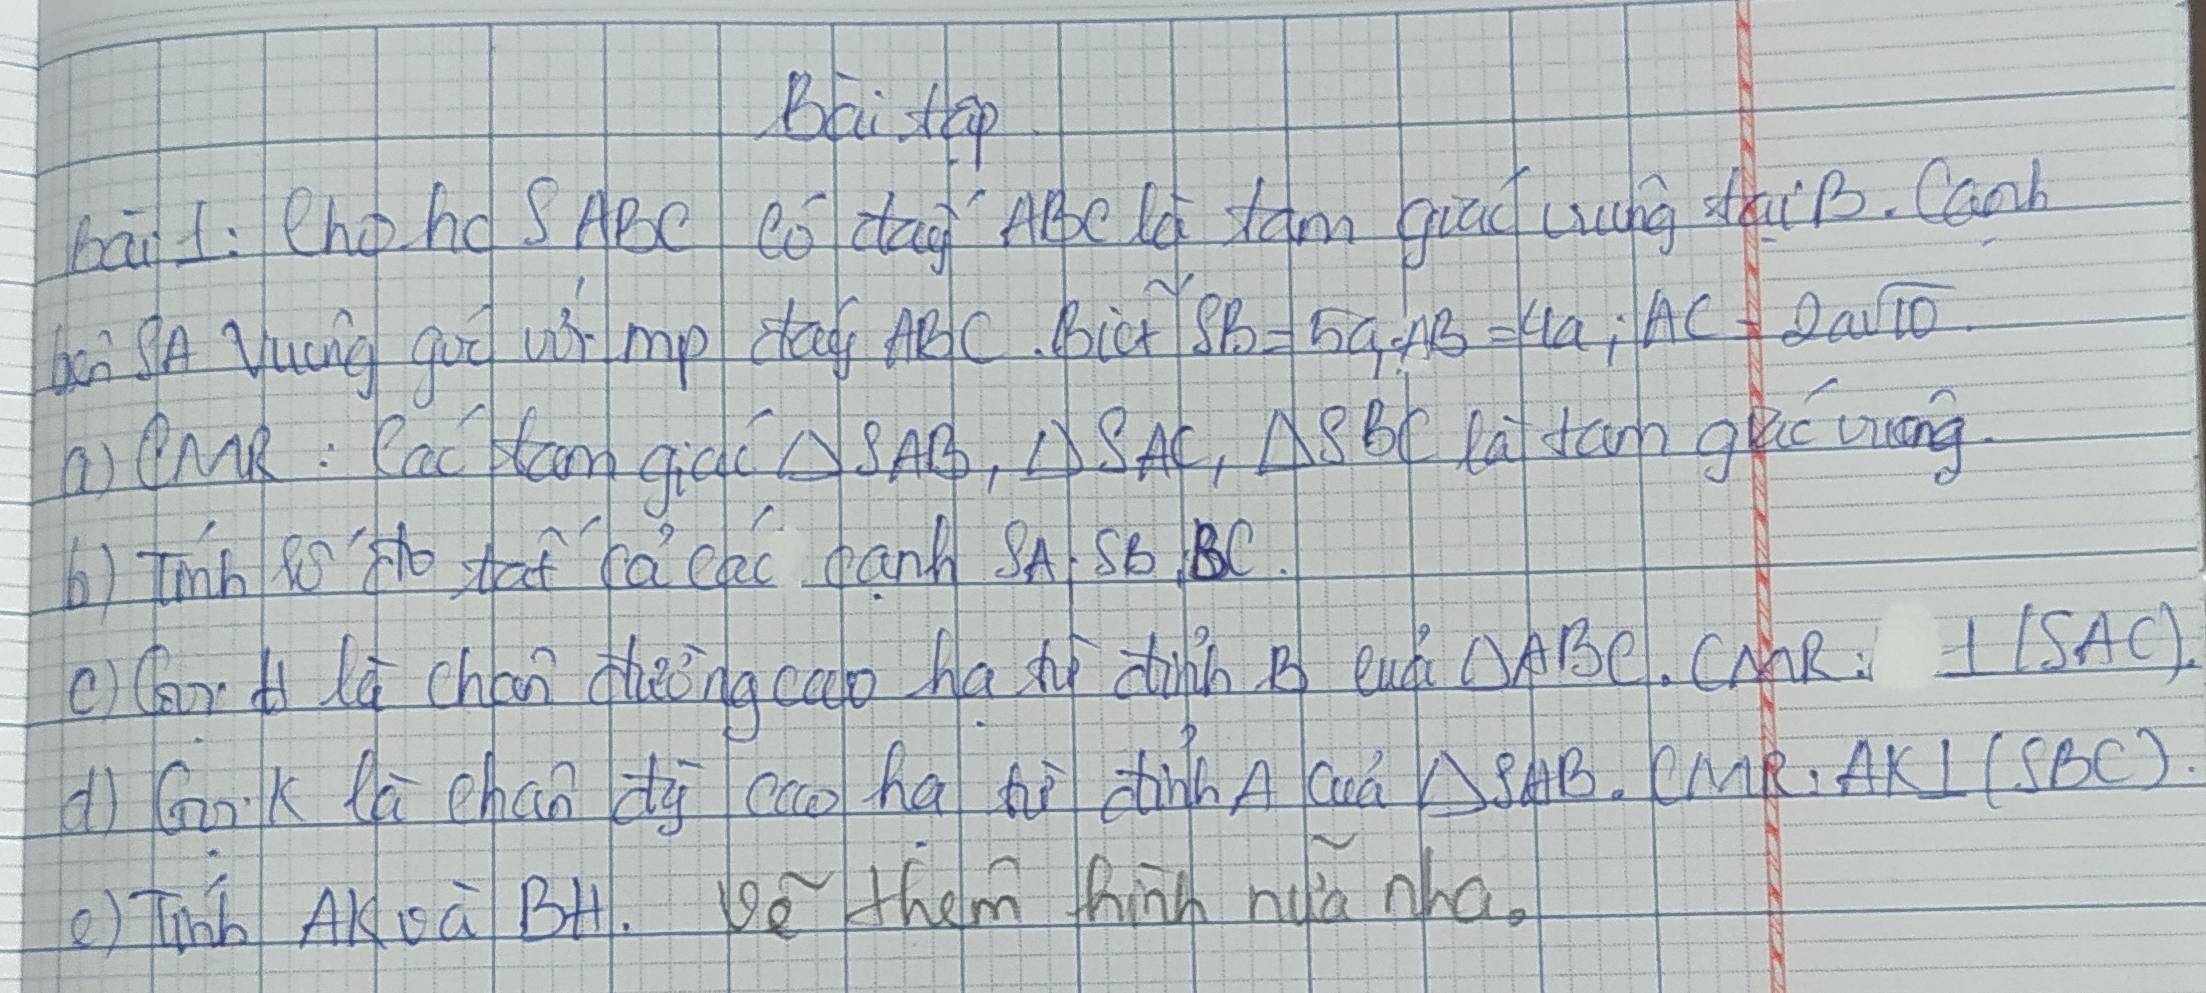 Bài tập
Bài 1: Cho hc SABC có đáy ABC là tam giác vuông tại B. Cạnh
bên SA vuông góc với mp đáy ABC. Biết SB = 5a; AB = 4a; AC = 2a√10
a) CMR: Các tam giác △SAB, △SAC, △SBC là tam giác vuông.
b) Tính số đo tất cả các cạnh SA, SB, BC.
c) Gọi H là chân đường cao hạ từ đỉnh B của △ABC. CMR: ⊥ (SAC).
d) Gọi K là chân đg cao hạ từ đỉnh A của △SAB. CMR: AK ⊥ (SBC).
e) Tính AK và BH. Vẽ thêm hình nữa nha.